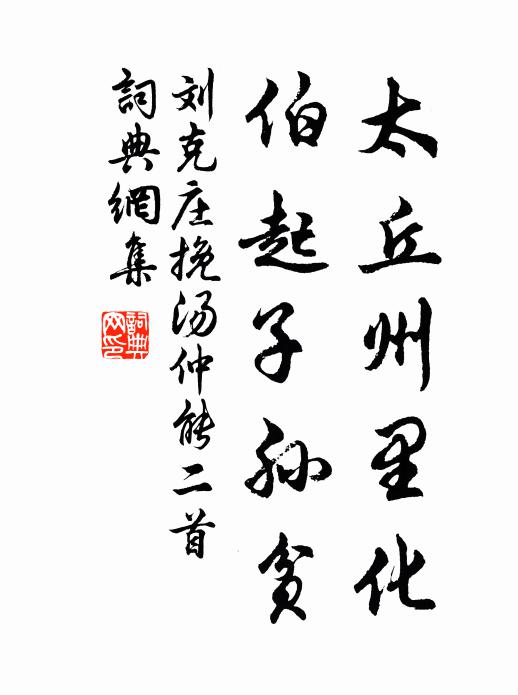 太丘州里化
伯起子孙贫
刘克庄挽汤仲能二首
詞典網集
詞典网印